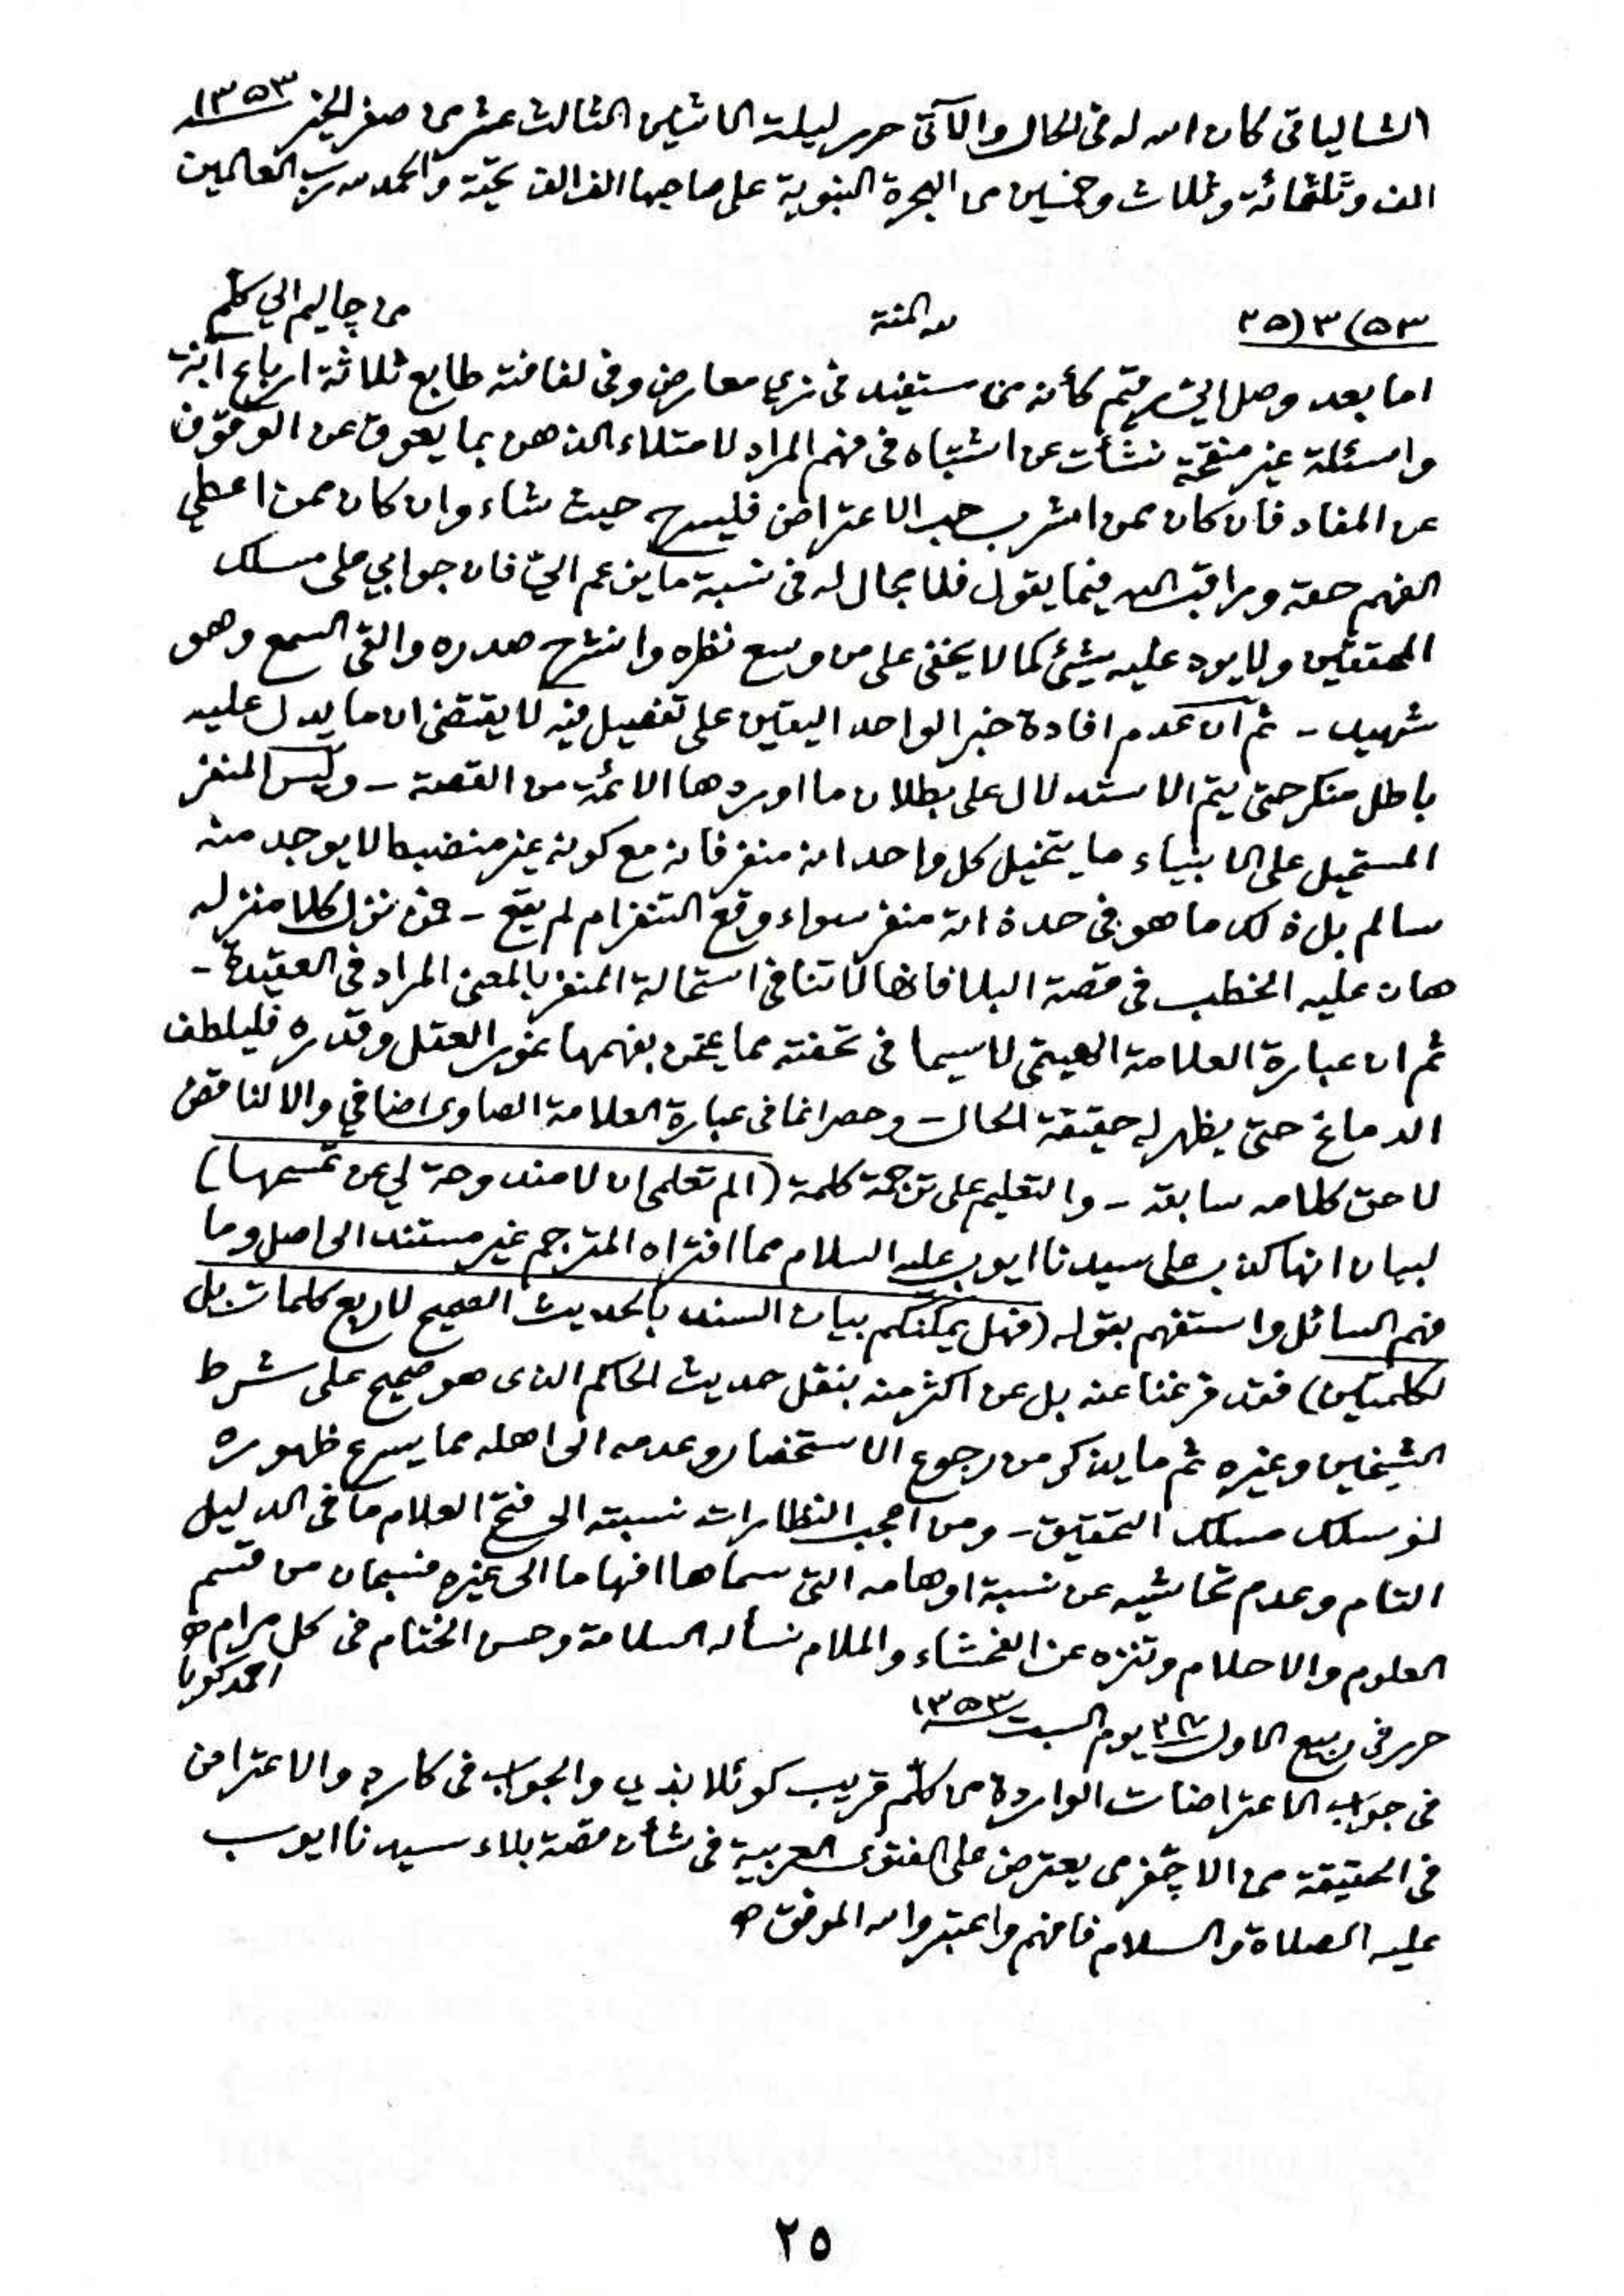 الشالياتى كان الله له فى الحال والآتى حرر ليلة الاثنين الثالث عشر من صفر الخير ١٣٥٣
الف وثلثمائة وثلاث وخمسين من الهجرة النبوية على صاحبها الف الف تحية والحمد لله رب العالمين
٢٥(٣(٥٣
لله المنة
من چاليم الي كلّم
اما بعد وصل اليّ رقيم كأنه من مستفيد فى زي معارض وفى لفافته طابع ثلاثة ارباع آنة
واسئلة غير منقحة نشأت عن اشتباه فى فهم المراد لامتلاء الذهن بما يعوق عن الوقوف
عن المفاد فان كان ممن اشرب حب الاعتراض فليسرح حيث شاء وان كان ممن اعطي
الفهم حقه وراقب الله فيما يقول فلا مجال له فى نسبة ما يزعم اليّ فان جوابي على مسلك
المحققين ولا يرد عليه شيئ كما لا يخفى على من وسع نظره وانشرح صدره والقى السمع وهو
شهيد - ثم ان عدم افادة خبر الواحد اليقين على تفصيل فيه لا يقتضى ان ما يدل عليه
باطل منكر حتى يتم الاستدلال على بطلان ما اوردها الائمة من القصة - وليس المنفر
المستحيل على الانبياء ما يتخيل كل واحد انه منفر فانه مع كونه غير منضبط لا يوجد منه
سالم بل ذلك ما هو فى حد ذاته منفر سواء وقع التنفر ام لم يقع - فمن نزل كلا منزله
هان عليه الخطب فى قصة البلا فانها لا تنافى استحالة المنفر بالمعنى المراد فى العقيدة -
ثم ان عبارة العلامة الهيتمى لاسيما فى تحفته مما يمتحن بفهمها غور العقل وقدره فليلطف
الدماغ حتى يظهر له حقيقة الحال - وحصر انما فى عبارة العلامة الصاوى اضافي والا لناقض
لاحق كلامه سابقه - والتعليم على ترجمة كلمة (الم تعلمى ان لا مندوحة لي عن تمسحها)
لبيان انها كذب على سيدنا ايوب عليه السلام مما افتراه المترجم غير مستند الى اصل وما
فهم السائل واستفهم بقوله (فهل يمكنكم بيان السند بالحديث الصحيح لاربع كلمات بل
لكلمتين) فقد فرغنا عنه بل عن اكثر منه بنقل حديث الحاكم الذى هو صحيح على شرط
الشيخين وغيره ثم ما يذكر من رجوع الاستحضار وعدمه الى اهله مما يسرع ظهوره
لو سلك مسلك التحقيق - ومن اعجب النظارات نسبته الى فتح العلام ما فى الدليل
التام وعدم تحاشيه عن نسبة اوهامه التى سماها افهاما الى غيره فسبحان من قسم
العلوم والاحلام وتنزه عن الفحشاء والملام نسأله السلامة وحسن الختام فى كل مرام
احمد كويا
حرر فى ربيع الاول يوم السبت ١٣٥٣
فى جواب الاعتراضات الواردة من كلّم قريب كوئلاندي والجواب فى كارد والاعتراض
فى الحقيقة من يعترض على الفتوى العربية فى شأن قصة بلاء سيدنا ايوب
عليه الصلاة والسلام فافهم واعتبر والله الموفق
٢٥